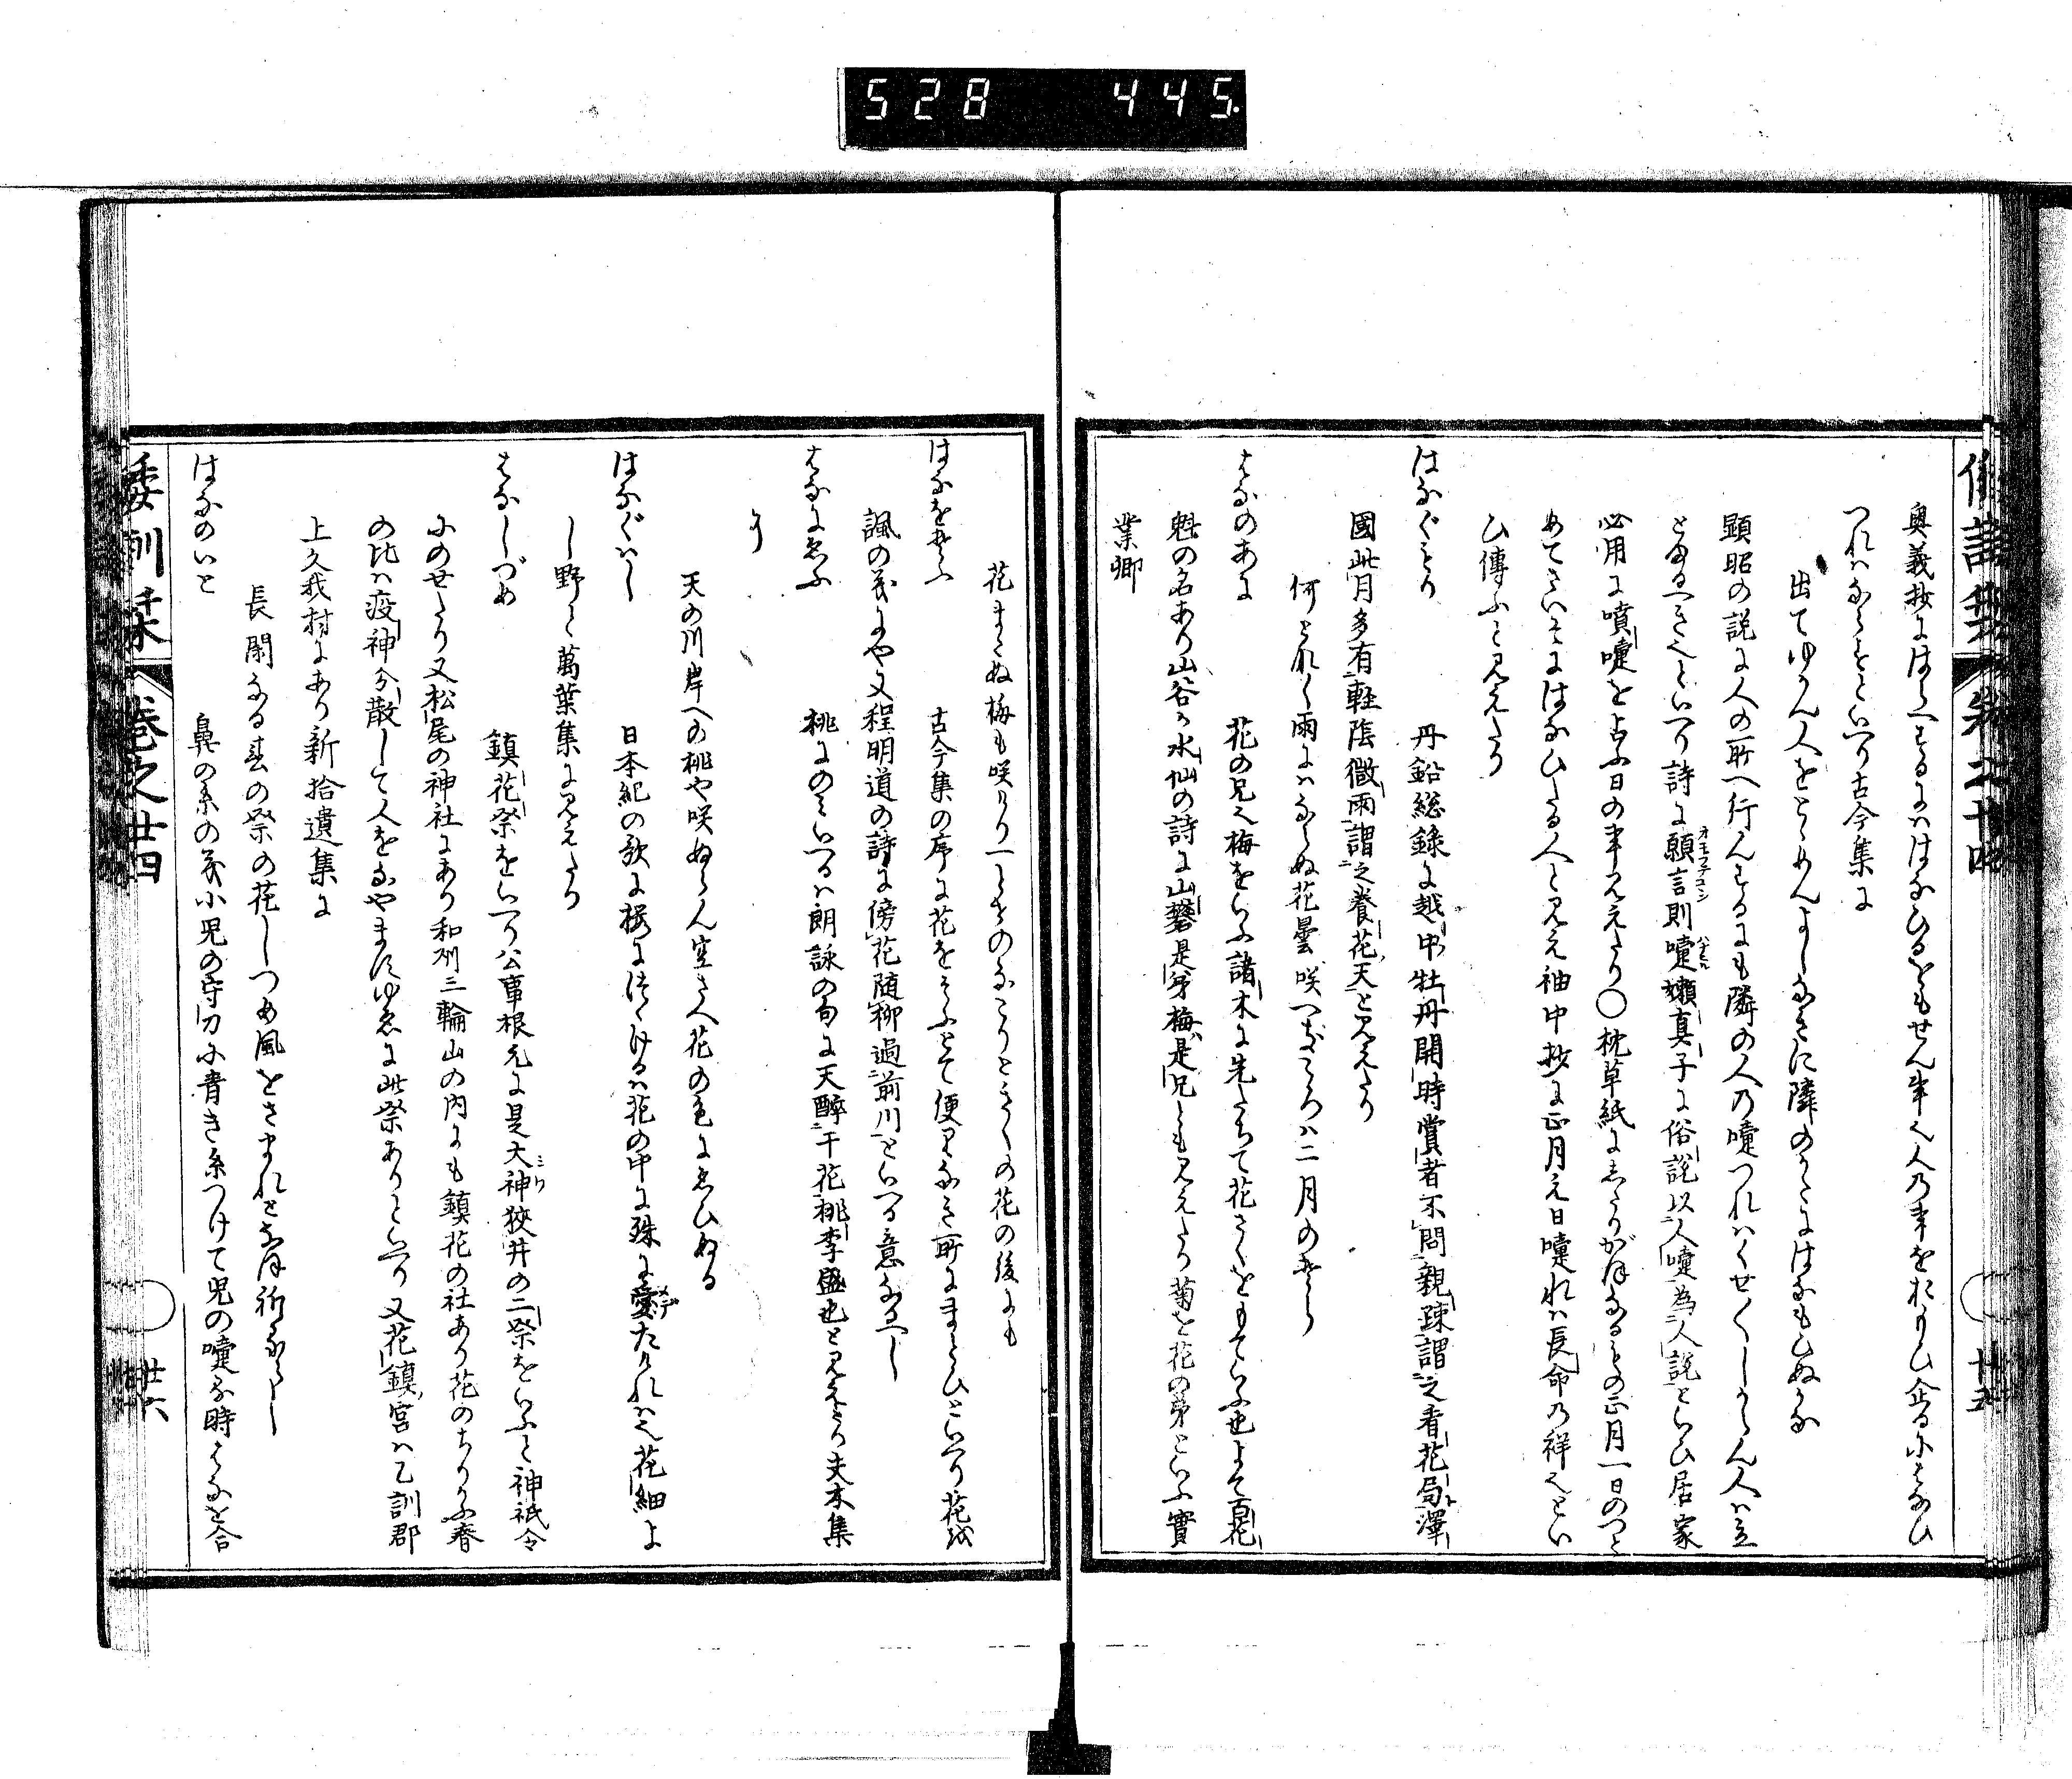 528 445.
奥義抄にはらへするにははなひるをもせん事也人の事をおもひ企るにはなひ
つれはならすといへり古今集に
出てゆかん人をとゝめんよしなきに隣のかたにはなもひぬかな
顕昭の説に人の所へ行んするにも隣の人の嚏つれはくせくしからん人は立
とまるへき也といへり詩に願言則嚏嬾真子に俗説以人嚏為人説といひ居家
必用に噴嚏を占ふ日の事見えたり○枕草紙にしたりがほなるもの正月一日のつと
めてさいそにはなひたる人と見え袖中抄に正月元日嚏れは長命の祥也とい
ひ傳ふと見えたり
はなぐもり 丹鉛総錄に越中牡丹開時賞者不問親疎謂之看花局澤
國此月多有輕陰微雨謂之養花天と見えたり
何となく雨にはならぬ花曇咲へきころは二月のそら
はなのあに 花の兄也梅をいふ諸木に先たちて花さくをもていふ也よて百花
魁の名あり山谷か水仙の詩に山礬是弟梅是兄とも見えたり菊を花の弟といふ實
業卿
花まちぬ梅も咲けり一とせのなこりときくの花の後にも
はなをそふ 古今集の序に花をそふとて便りなき所にまとひといへり花紅
諷の義にや又程明道の詩に傍花随柳過前川といへる意なるへし
はなにゑふ 桃にのみいへるは朗詠の句に天醉于花桃李盛也と見えたり夫木集
に
天の川岸への桃や咲ぬらん空さへ花の色にゑひぬる
はなぐはし 日本紀の歌に櫻につゝけるは花の中に殊に愛たけれは也花細よ
し野と萬葉集に見えたり
はなしづめ 鎮花祭をいへり公事根元に是大神狹井の二祭をいふと神祇令
にのせたり又松尾の神社にあり和州三輪山の内にも鎮花の社あり花のちりかふ春
の比は疫神分散して人をなやますゆゑに此祭ありといへり又花鎮宮は乙訓郡
上久我村にあり新拾遺集に
長閑なる春の祭の花しつめ風をさまれとなほ祈るらし
はなのいと 鼻の糸の義小児の守刀に青き糸つけて児の嚏る時はなを合
倭訓栞 巻之廿四 廿六